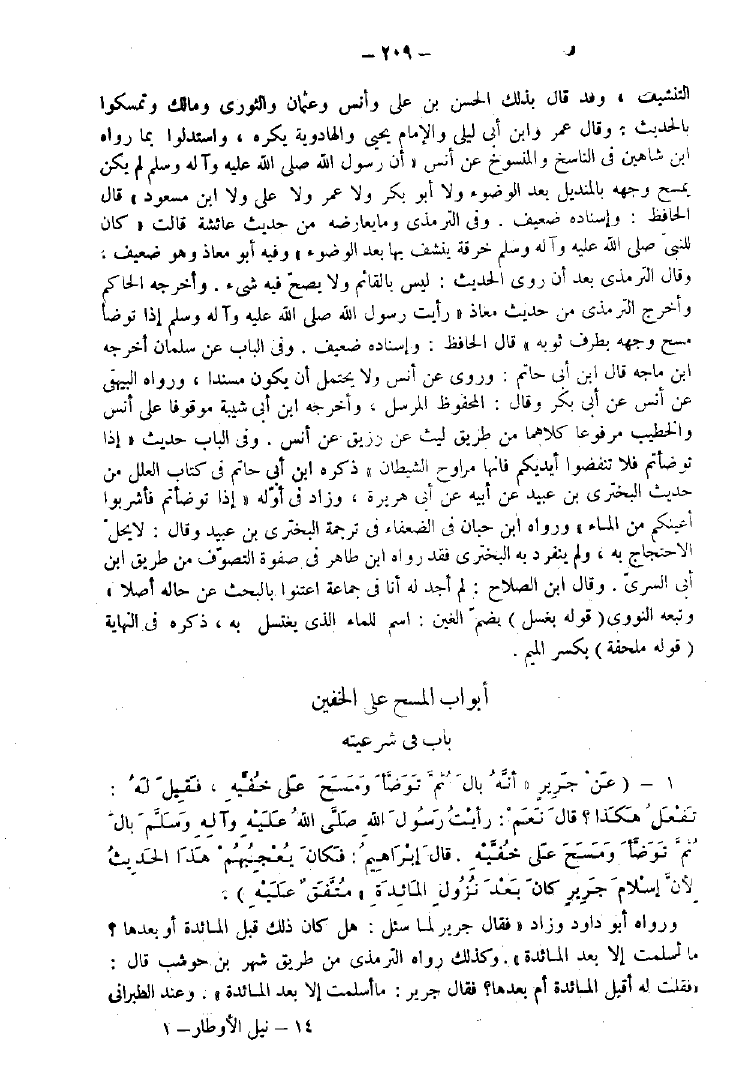 - ٢٠٩ -
التنشيف ، وقد قال بذلك الحسن بن على وأنس وعثمان والثورى ومالك وتمسكوا
بالحديث : وقال عمر وابن أبى ليلى والإمام يحيى والهادوية يكره ، واستدلوا بما رواه
ابن شاهين فى الناسخ والمنسوخ عن أنس « أن رسول الله صلى الله عليه وآله وسلم لم يكن
يمسح وجهه بالمنديل بعد الوضوء ولا أبو بكر ولا عمر ولا على ولا ابن مسعود » قال
الحافظ : وإسناده ضعيف . وفى الترمذى ومايعارضه من حديث عائشة قالت « كان
للنبىّ صلى الله عليه وآله وسلم خرقة ينشف بها بعد الوضوء » وفيه أبو معاذ وهو ضعيف ،
وقال الترمذى بعد أن روى الحديث : ليس بالقائم ولا يصحّ فيه شىء . وأخرجه الحاكم
وأخرج الترمذى من حديث معاذ « رأيت رسول الله صلى الله عليه وآله وسلم إذا توضأ
مسح وجهه بطرف ثوبه » قال الحافظ : وإسناده ضعيف . وفى الباب عن سلمان أخرجه
ابن ماجه قال ابن أبى حاتم : وروى عن أنس ولا يحتمل أن يكون مسندا ، ورواه البيهقى
عن أنس عن أبى بكر وقال : المحفوظ المرسل ، وأخرجه ابن أبى شيبة موقوفا على أنس
والخطيب مرفوعا كلاهما من طريق ليث عن رزيق عن أنس . وفى الباب حديث « إذا
توضأتم فلا تنفضوا أيديكم فانها مراوح الشيطان » ذكره ابن أبى حاتم فى كتاب العلل من
حديث البخترى بن عبيد عن أبيه عن أبى هريرة ، وزاد فى أوّله « إذا توضأتم فأشربوا
أعينكم من الماء » ورواه ابن حبان فى الضعفاء فى ترجمة البخترى بن عبيد وقال : لايحلّ
الاحتجاج به ، ولم ينفرد به البخترى فقد رواه ابن طاهر فى صفوة التصوّف من طريق ابن
أبى السرىّ . وقال ابن الصلاح : لم أجد له أنا فى جماعة اعتنوا بالبحث عن حاله أصلا ،
وتبعه النووى ( قوله بغسل ) بضمّ الغين : اسم للماء الذى يغتسل به ، ذكره فى النهاية
( قوله ملحفة ) بكسر الميم .
أبواب المسح على الخفين
باب فى شرعيته
١ - ( عَنْ جَرِيرٍ « أنَّهُ بالَ ثُمَّ تَوَضَّأَ وَمَسَحَ عَلى خُفَّيْهِ ، فَقِيلَ لَهُ :
تَفْعَلُ هَكَذَا ؟ قالَ نَعَمْ : رأيْتُ رَسُولَ اللهِ صَلَّى اللهُ عَلَيْهِ وآلِهِ وَسَلَّمَ بالَ
ثُمَّ تَوَضَّأَ وَمَسَحَ عَلى خُفَّيْهِ . قالَ إبْرَاهِيمُ : فَكانَ يُعْجِبُهُمْ هَذَا الحَدِيثُ
لأنَّ إسْلامَ جَرِيرٍ كانَ بَعْدَ نُزُولِ المَائِدَةِ » مُتَّفَقٌ عَلَيْهِ ) .
ورواه أبو داود وزاد « فقال جرير لما سئل : هل كان ذلك قبل المائدة أو بعدها ؟
ما أسلمت إلا بعد المائدة » . وكذلك رواه الترمذى من طريق شهر بن حوشب قال :
«فقلت له أقبل المائدة أم بعدها؟ فقال جرير : ماأسلمت إلا بعد المائدة » . وعند الطبرانى
١٤ - نيل الأوطار - ١